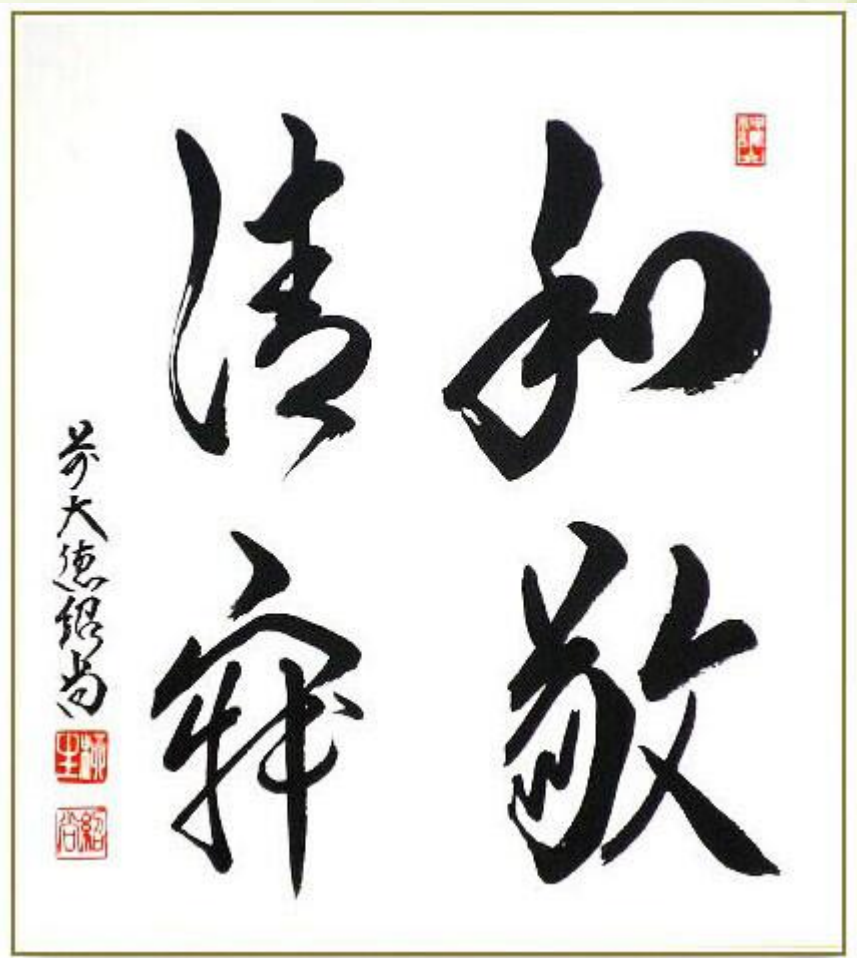 和敬
清寂
前大徳紹尚